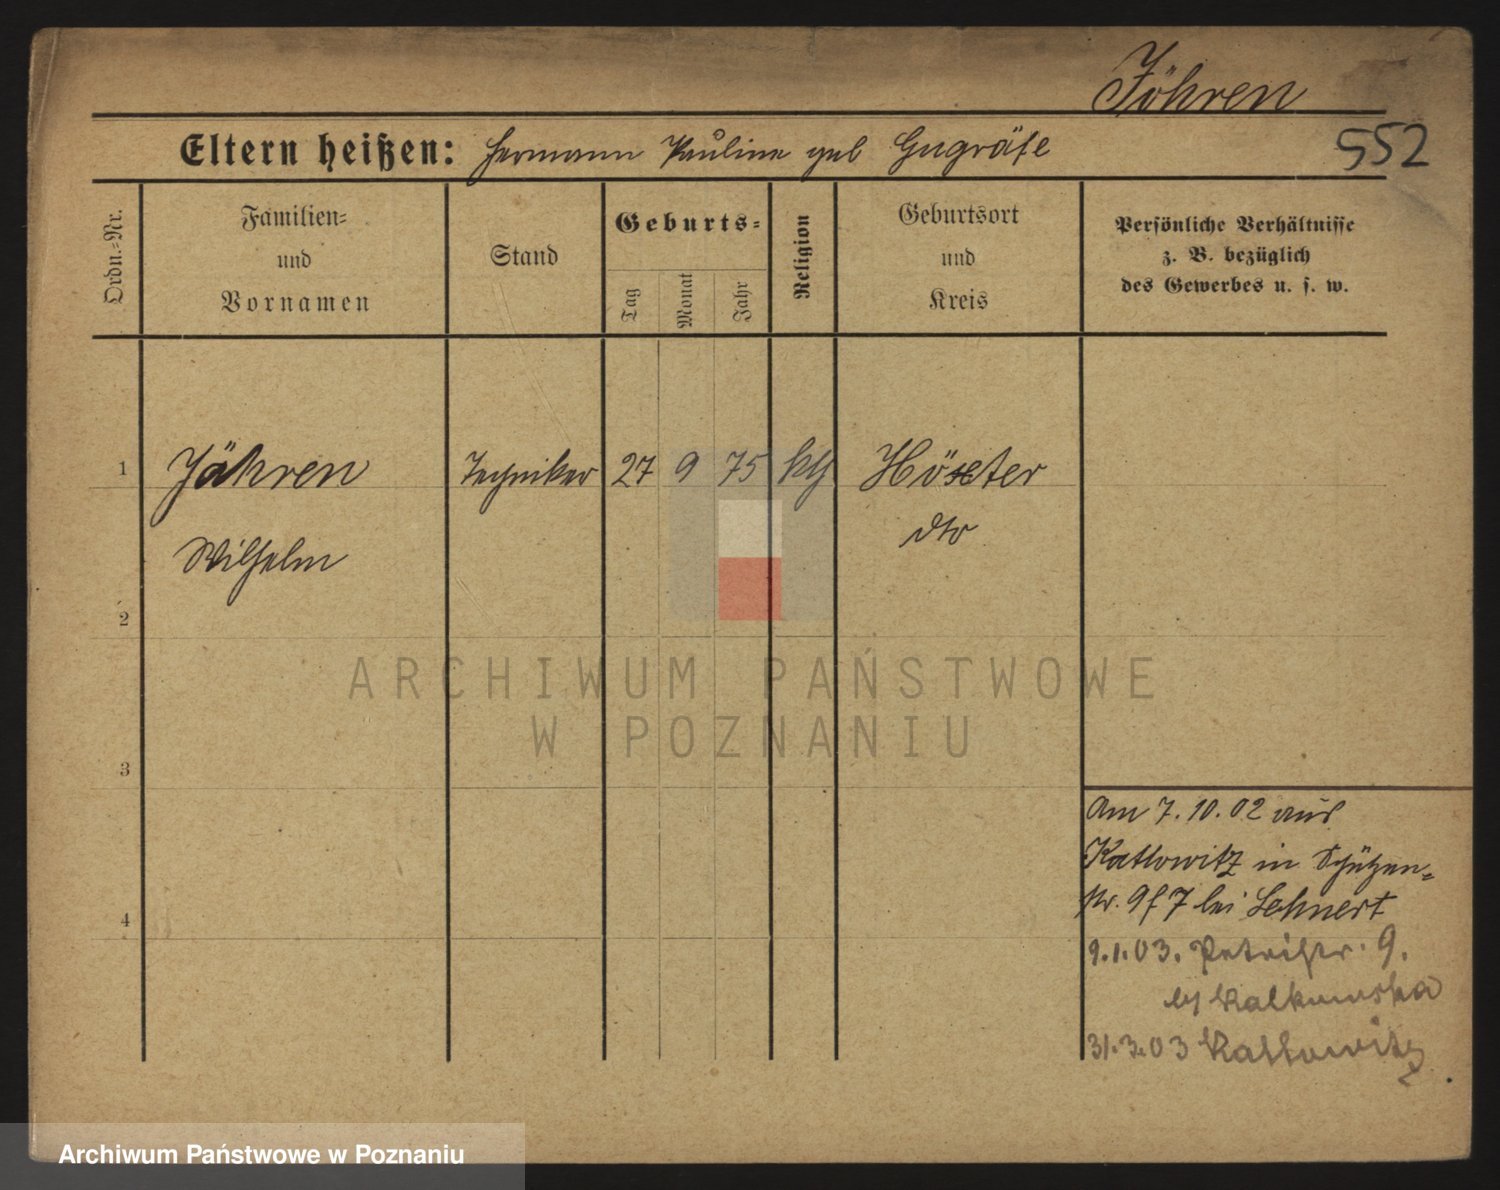 Jöhren
Eltern heißen: Hermann Pauline geb Gugräfe
552
Ordn.-Nr.
Familien-
und
Vornamen
Stand
Geburts-
Tag
Monat
Jahr
Religion
Geburtsort
und
Kreis
Persönliche Verhältnisse
z. B. bezüglich
des Gewerbes u. s. w.
1 Jähren Techniker 27 9 75 kth Höxter
Wilhelm dto
2
3
4
Am 7. 10. 02 aus
Kattowitz in Schützen-
str. 9 f 7 bei Lehnert
9.1.03. Petristr. 9.
by Kalkowska
31.3.03 Kattowitz
ARCHIWUM PAŃSTWOWE
W POZNANIU
Archiwum Państwowe w Poznaniu